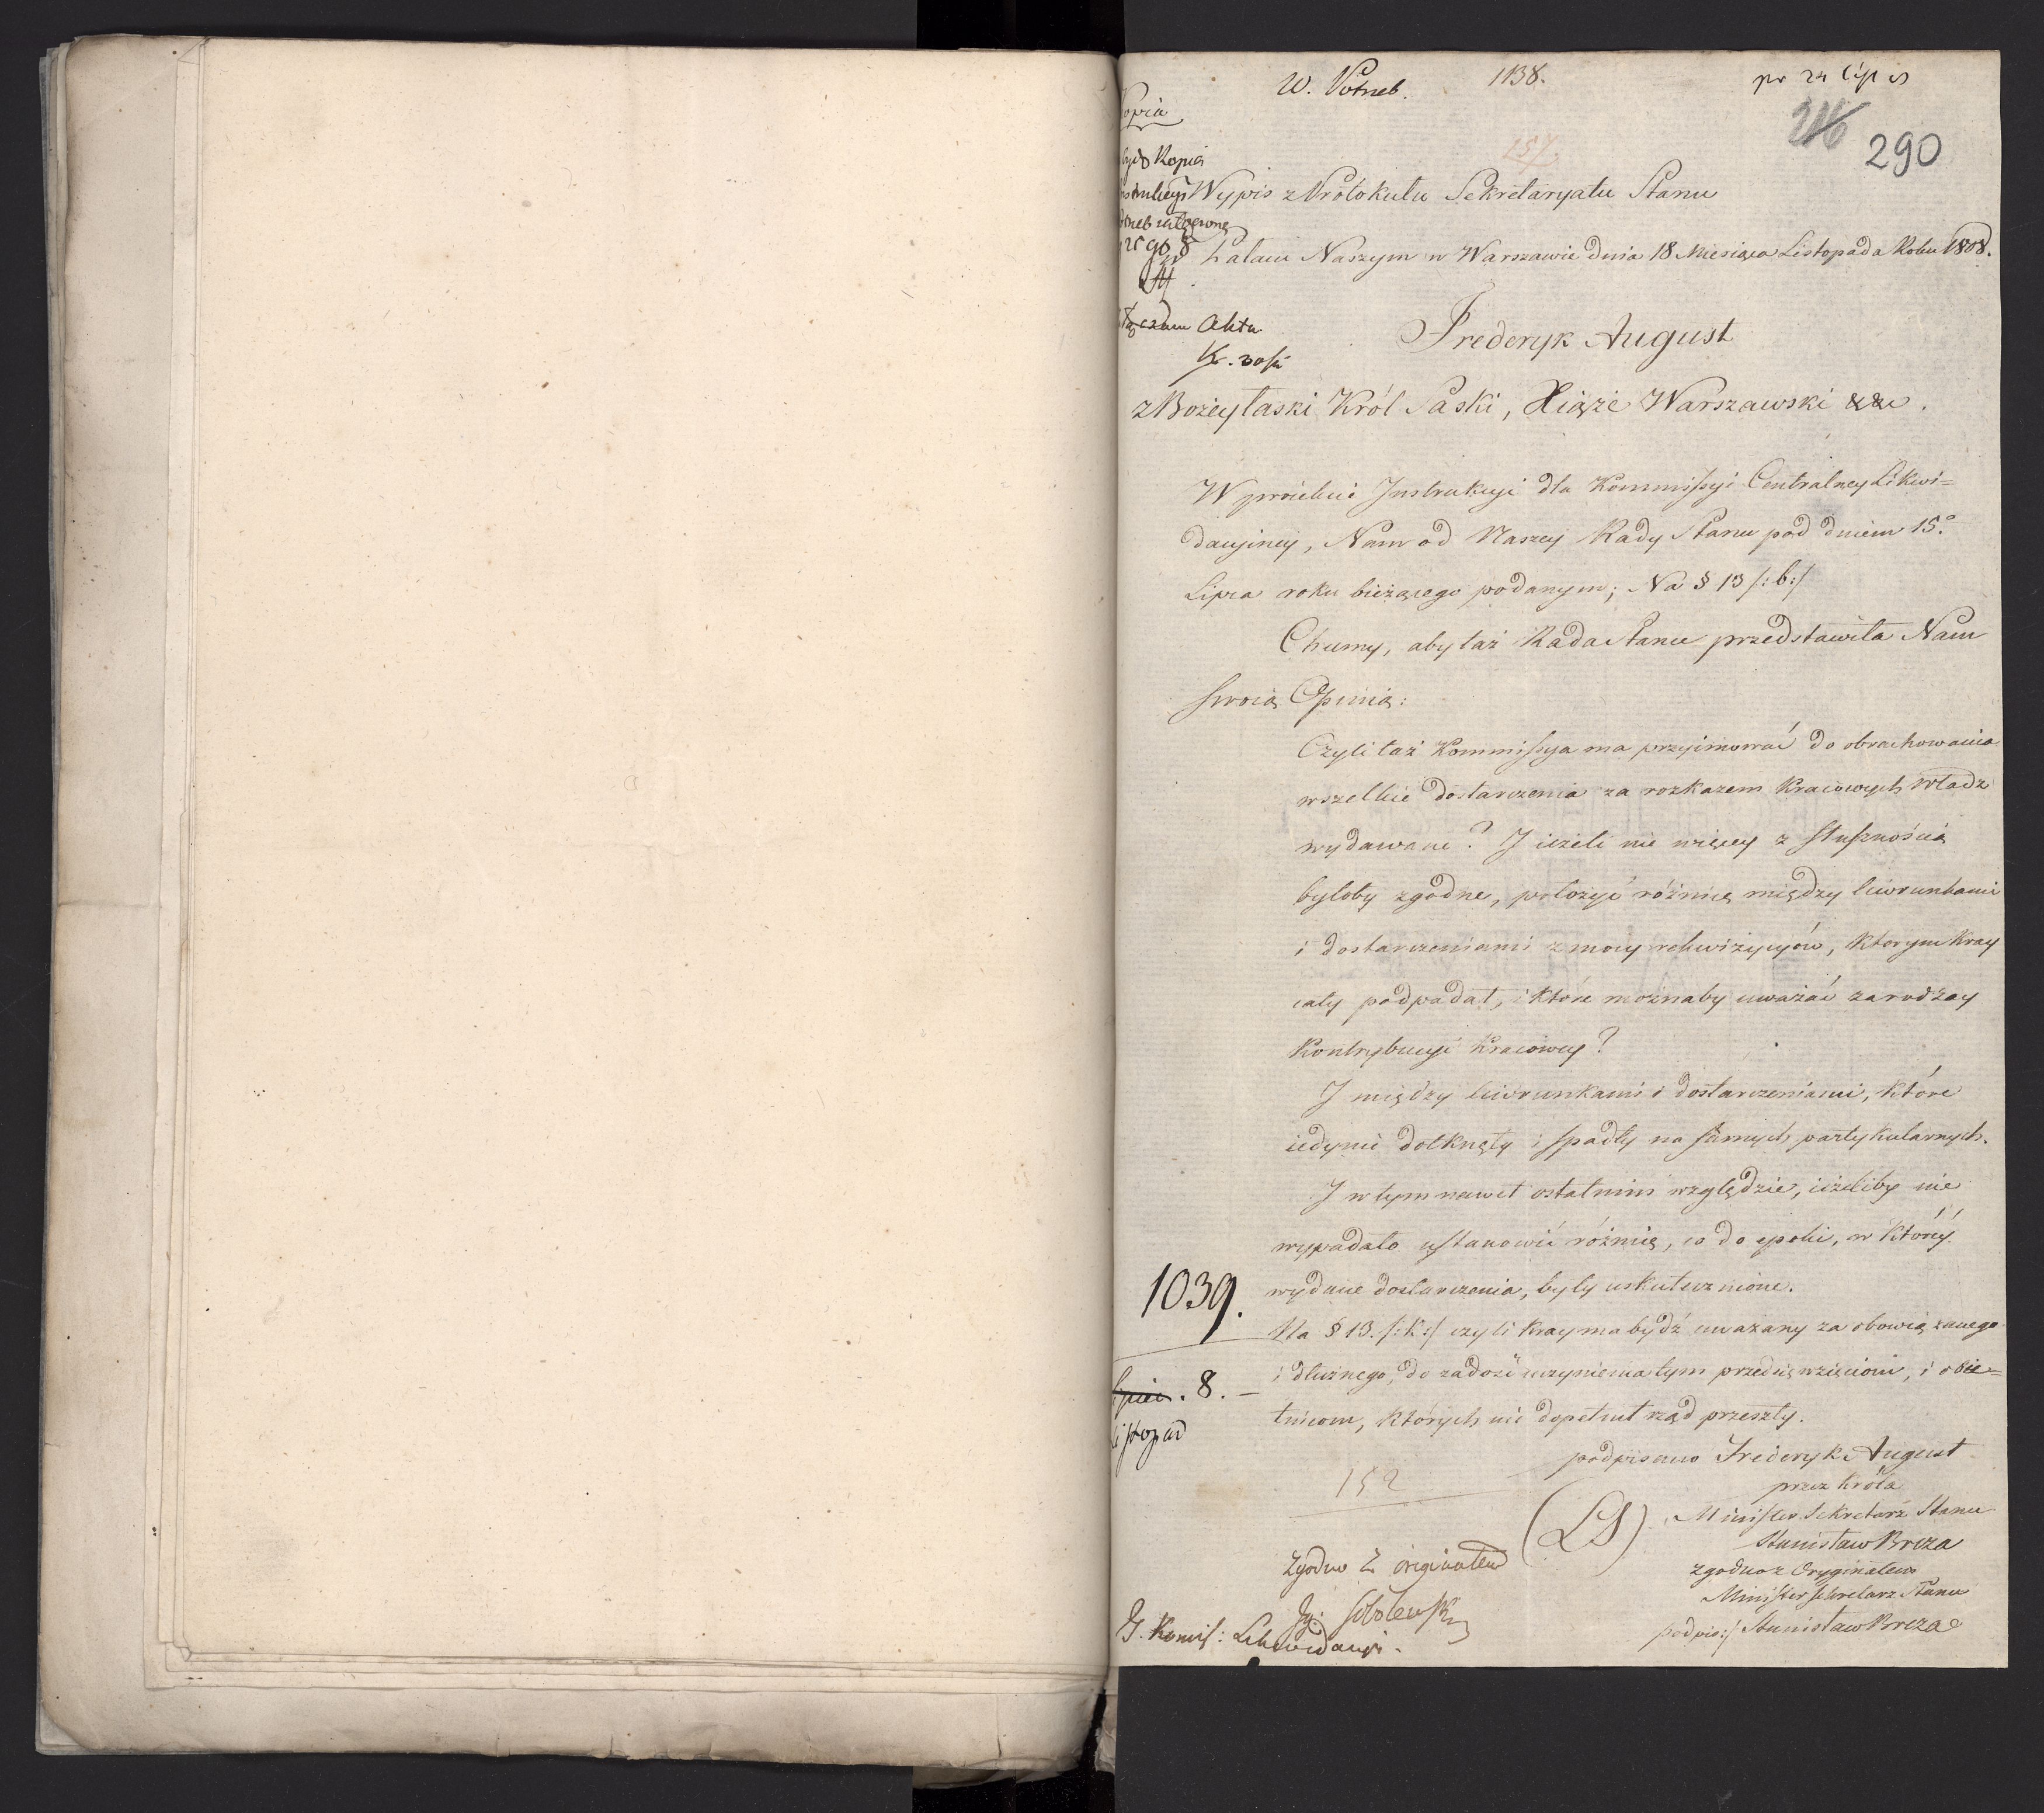 W. Potrzeb. 1138. pr 24 Lipca
Kopia
216 290
157.
Kopia
Wypis z Protokułu Sekretaryatu Stanu
Pałacu Naszym w Warszawie dnia 18 Miesiąca Listopada Roku 1808.
Akta
Frederyk August
z Bożey łaski Król Saski, Xiąże Warszawski &&c.
W proiekcie Instrukcyi dla Kommissyi Centralney Likwi=
dacyiney, Nam od Naszey Rady Stanu pod dniem 15.°
Lipca roku bieżącego podanym; Na § 13 /:b:/
Chcemy, aby taż Rada Stanu przedstawiła Nam
swoią Opinią:
Czyli taż Kommissya ma przyimować do obrachowania
wszelkie dostarczenia za rozkazem Kraiowych Władz
wydawane? I ieżeli nie więcey z słusznością
byłoby zgodne, położyć różnicę między liwerunkami
i dostarczeniami z mocy rekwizycyów, którym Kray
cały podpadał, i które możnaby uważać za rodzay
Kontrybucyi Kraiowey?
I między liwerunkami i dostarczeniami, które
iedynie dotknęły i spadły na samych partykularnych.
I w tym nawet ostatnim względzie, ieżeliby nie
wypadało ustanowić różnicę, co do epoki, w którey
wydane dostarczenia, były uskutecznione.
1039.
Na § 13. /:k:/ czyli Kray ma bydź uważany za obowiązanego
i dłużnego, do zadość uczynienia tym przedsięwzięciom, i obie=
tnicom, których nie dopełnił rząd przeszły.
Lipiec. 8. —
Listopad
152
podpisano Frederyk August
przez Króla
(LS) Minister Sekretarz Stanu
Stanisław Breza
zgodno z Oryginałem
Minister Sekretarz Stanu
podpis:/ Stanisław Breza
Zgodno z originałem
Ig. Sobolewski
Komis: Likwidacyi.